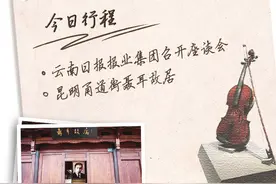 今日行程
云南日报报业集团召开座谈会
昆明甬道街聂耳故居